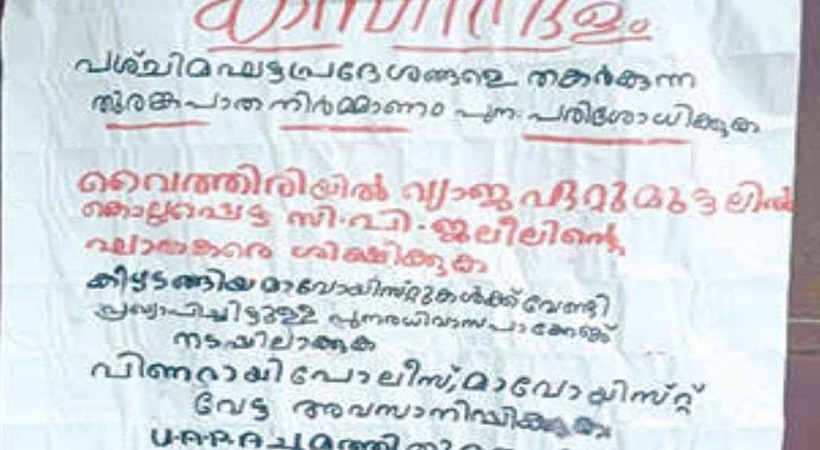 കബനീദളം
പശ്ചിമഘട്ടപ്രദേശങ്ങളെ തകർക്കുന്ന
തുരങ്കപാത നിർമ്മാണം പുന:പരിശോധിക്കുക
വൈത്തിരിയിൽ വ്യാജ ഏറ്റുമുട്ടലിൽ
കൊല്ലപ്പെട്ട സി.പി.ജലീലിന്റെ
ഘാതകരെ ശിക്ഷിക്കുക
കീഴടങ്ങിയ മാവോയിസ്റ്റുകൾക്ക് വേണ്ടി
പ്രഖ്യാപിച്ചിട്ടുള്ള പുനരധിവാസപാക്കേജ്
നടപ്പിലാക്കുക
പിണറായി പോലീസ്, മാവോയിസ്റ്റ്
വേട്ട അവസാനിപ്പിക്കുക
U.A.P.A ചുമത്തി